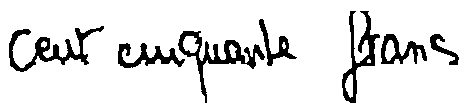 cent cinquante frans